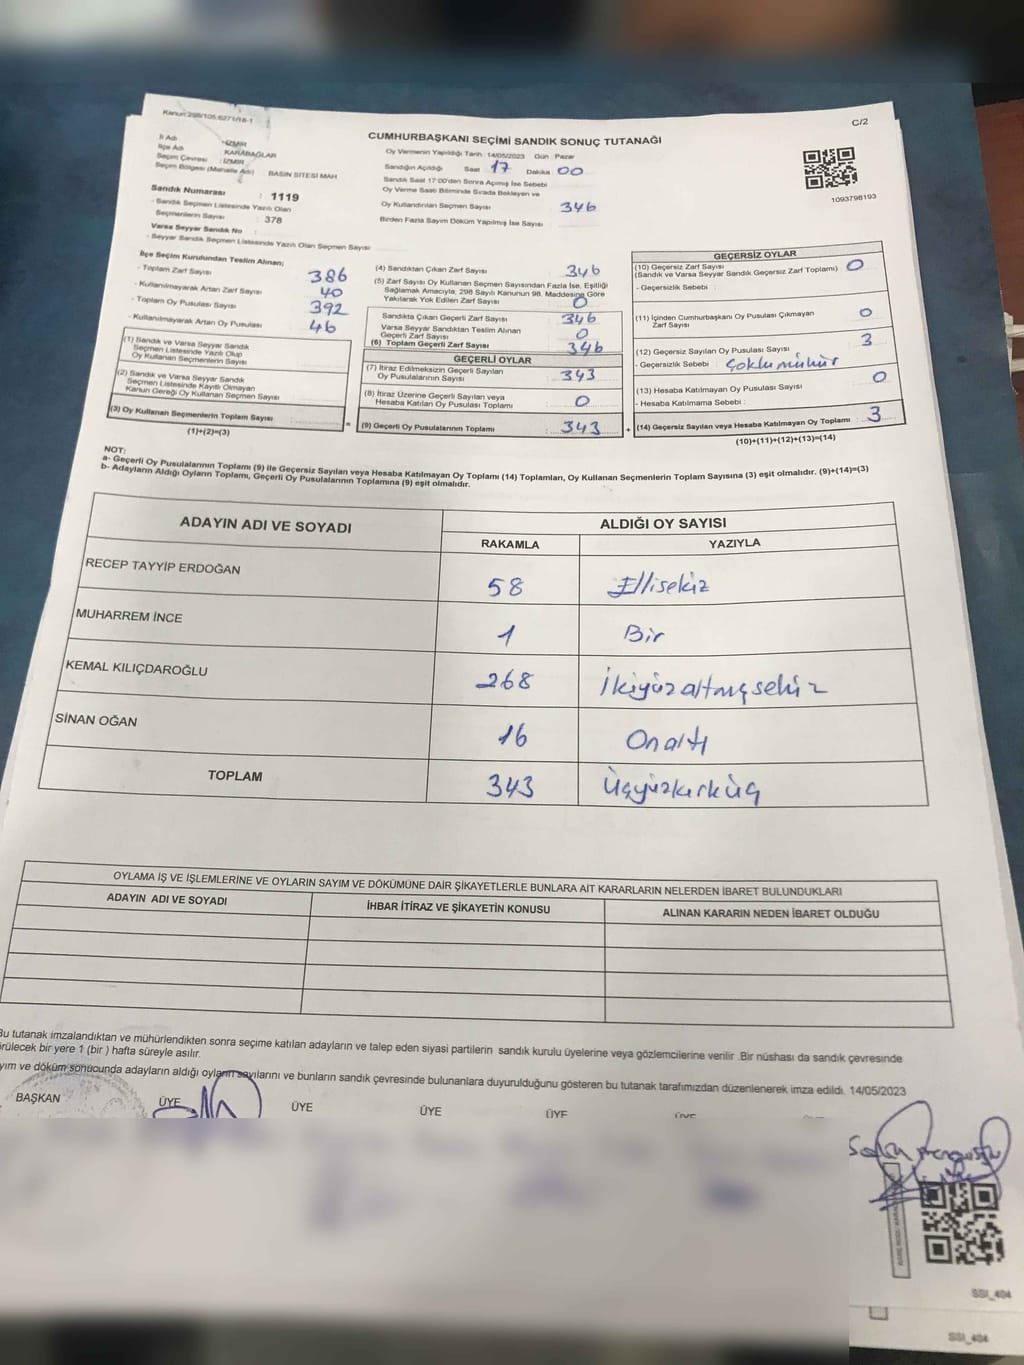 Kanun:298/105,6271/18-1
C/2
CUMHURBAŞKANI SEÇİMİ SANDIK SONUÇ TUTANAĞI
İl Adı : İZMİR
İlçe Adı : KARABAĞLAR
Seçim Çevresi : İZMİR
Seçim Bölgesi (Mahalle Adı) BASIN SİTESİ MAH
Sandık Numarası : 1119
- Sandık Seçmen Listesinde Yazılı Olan
Seçmenlerin Sayısı : 378
Varsa Seyyar Sandık No :
- Seyyar Sandık Seçmen Listesinde Yazılı Olan Seçmen Sayısı
Oy Vermenin Yapıldığı Tarih :14/05/2023 Gün : Pazar
Sandığın Açıldığı Saat 17 Dakika 00
Sandık Saat 17:00'den Sonra Açımış İse Sebebi
Oy Verme Saati Bitiminde Sırada Bekleyen ve
Oy Kullandırılan Seçmen Sayısı 346
Birden Fazla Sayım Döküm Yapılmış İse Sayısı
1093798193
İlçe Seçim Kurulundan Teslim Alınan;
- Toplam Zarf Sayısı 386
- Kullanılmayarak Artan Zarf Sayısı 40
- Toplam Oy Pusulası Sayısı 392
- Kullanılmayarak Artan Oy Pusulası 46
(1) Sandık ve Varsa Seyyar Sandık
Seçmen Listesinde Yazılı Olup
Oy Kullanan Seçmenlerin Sayısı
(2) Sandık ve Varsa Seyyar Sandık
Seçmen Listesinde Kayıtlı Olmayan
Kanun Gereği Oy Kullanan Seçmen Sayısı
(3) Oy Kullanan Seçmenlerin Toplam Sayısı :
(1)+(2)=(3)
(4) Sandıktan Çıkan Zarf Sayısı 346
(5) Zarf Sayısı Oy Kullanan Seçmen Sayısından Fazla İse, Eşitliği
Sağlamak Amacıyla, 298 Sayılı Kanunun 98. Maddesine Göre
Yakılarak Yok Edilen Zarf Sayısı 0
Sandıkta Çıkan Geçerli Zarf Sayısı 346
Varsa Seyyar Sandıktan Teslim Alınan
Geçerli Zarf Sayısı 0
(6) Toplam Geçerli Zarf Sayısı 346
GEÇERLİ OYLAR
(7) İtiraz Edilmeksizin Geçerli Sayılan
Oy Pusulalarının Sayısı : 343
(8) İtiraz Üzerine Geçerli Sayılan veya
Hesaba Katılan Oy Pusulası Toplamı : 0
= (9) Geçerli Oy Pusulalarının Toplamı : 343 +
GEÇERSİZ OYLAR
(10) Geçersiz Zarf Sayısı 0
(Sandık ve Varsa Seyyar Sandık Geçersiz Zarf Toplamı)
- Geçersizlik Sebebi :
(11) İçinden Cumhurbaşkanı Oy Pusulası Çıkmayan
Zarf Sayısı 0
(12) Geçersiz Sayılan Oy Pusulası Sayısı 3
- Geçersizlik Sebebi : Çoklu mühür
(13) Hesaba Katılmayan Oy Pusulası Sayısı 0
- Hesaba Katılmama Sebebi :
(14) Geçersiz Sayılan veya Hesaba Katılmayan Oy Toplamı : 3
(10)+(11)+(12)+(13)=(14)
NOT:
a- Geçerli Oy Pusulalarının Toplamı (9) ile Geçersiz Sayılan veya Hesaba Katılmayan Oy Toplamı (14) Toplamları, Oy Kullanan Seçmenlerin Toplam Sayısına (3) eşit olmalıdır. (9)+(14)=(3)
b- Adayların Aldığı Oyların Toplamı, Geçerli Oy Pusulalarının Toplamına (9) eşit olmalıdır.
ADAYIN ADI VE SOYADI
ALDIĞI OY SAYISI
RAKAMLA YAZIYLA
RECEP TAYYİP ERDOĞAN 58 Ellisekiz
MUHARREM İNCE 1 Bir
KEMAL KILIÇDAROĞLU 268 İkiyüzaltmışsekiz
SİNAN OĞAN 16 Onaltı
TOPLAM 343 Üçyüzkırküç
OYLAMA İŞ VE İŞLEMLERİNE VE OYLARIN SAYIM VE DÖKÜMÜNE DAİR ŞİKAYETLERLE BUNLARA AİT KARARLARIN NELERDEN İBARET BULUNDUKLARI
ADAYIN ADI VE SOYADI İHBAR İTİRAZ VE ŞİKAYETİN KONUSU ALINAN KARARIN NEDEN İBARET OLDUĞU
Bu tutanak imzalandıktan ve mühürlendikten sonra seçime katılan adayların ve talep eden siyasi partilerin sandık kurulu üyelerine veya gözlemcilerine verilir .Bir nüshası da sandık çevresinde
örülecek bir yere 1 (bir ) hafta süreyle asılır.
yım ve döküm sonucunda adayların aldığı oyların sayılarını ve bunların sandık çevresinde bulunanlara duyurulduğunu gösteren bu tutanak tarafımızdan düzenlenerek imza edildi. 14/05/2023
BAŞKAN ÜYE ÜYE ÜYE ÜYE
SSI_404
SSI_404